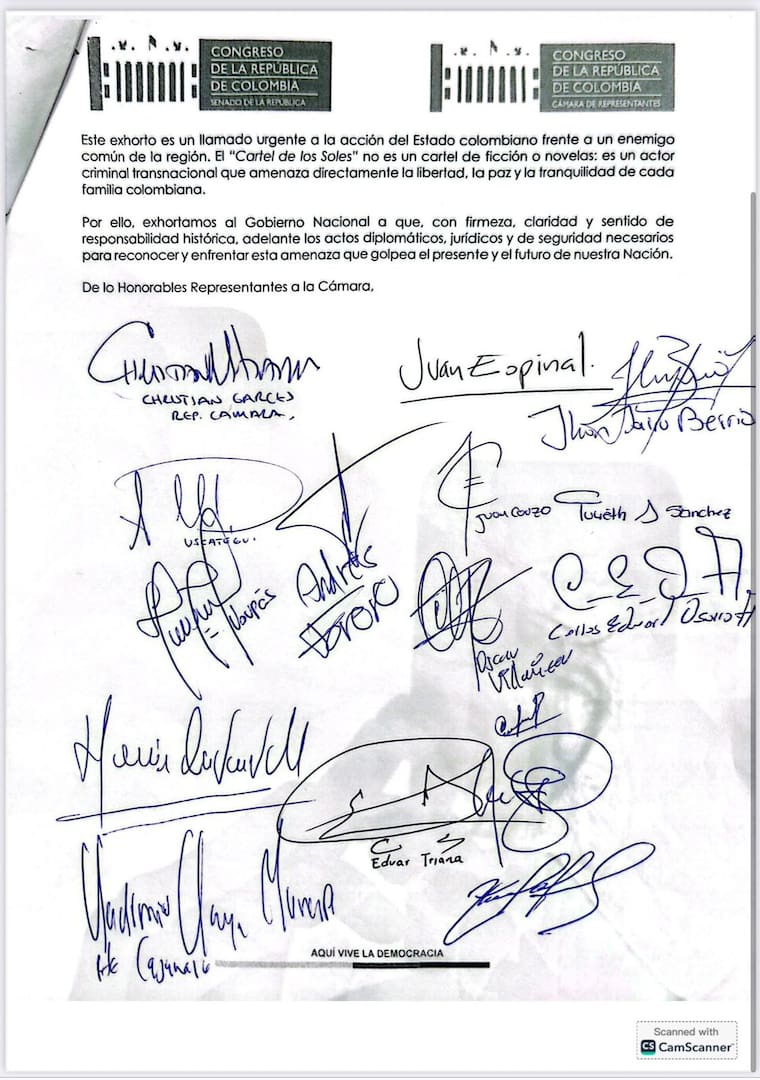 CONGRESO
DE LA REPÚBLICA
DE COLOMBIA
SENADO DE LA REPÚBLICA
CONGRESO
DE LA REPÚBLICA
DE COLOMBIA
CÁMARA DE REPRESENTANTES
Este exhorto es un llamado urgente a la acción del Estado colombiano frente a un enemigo
común de la región. El "Cartel de los Soles" no es un cartel de ficción o novelas: es un actor
criminal transnacional que amenaza directamente la libertad, la paz y la tranquilidad de cada
familia colombiana.
Por ello, exhortamos al Gobierno Nacional a que, con firmeza, claridad y sentido de
responsabilidad histórica, adelante los actos diplomáticos, jurídicos y de seguridad necesarios
para reconocer y enfrentar esta amenaza que golpea el presente y el futuro de nuestra Nación.
De lo Honorables Representantes a la Cámara,
Juan Espinal.
CHRISTIAN GARCES
REP. CAMARA,
Jhon Jairo Berrio
Juan Yulieth Sánchez
USCATEGUI.
Andrés
Forero
Carlos Edward Osorio
Oscar
Villamizar
Eduar Triana
AQUÍ VIVE LA DEMOCRACIA
Scanned with
CS CamScanner